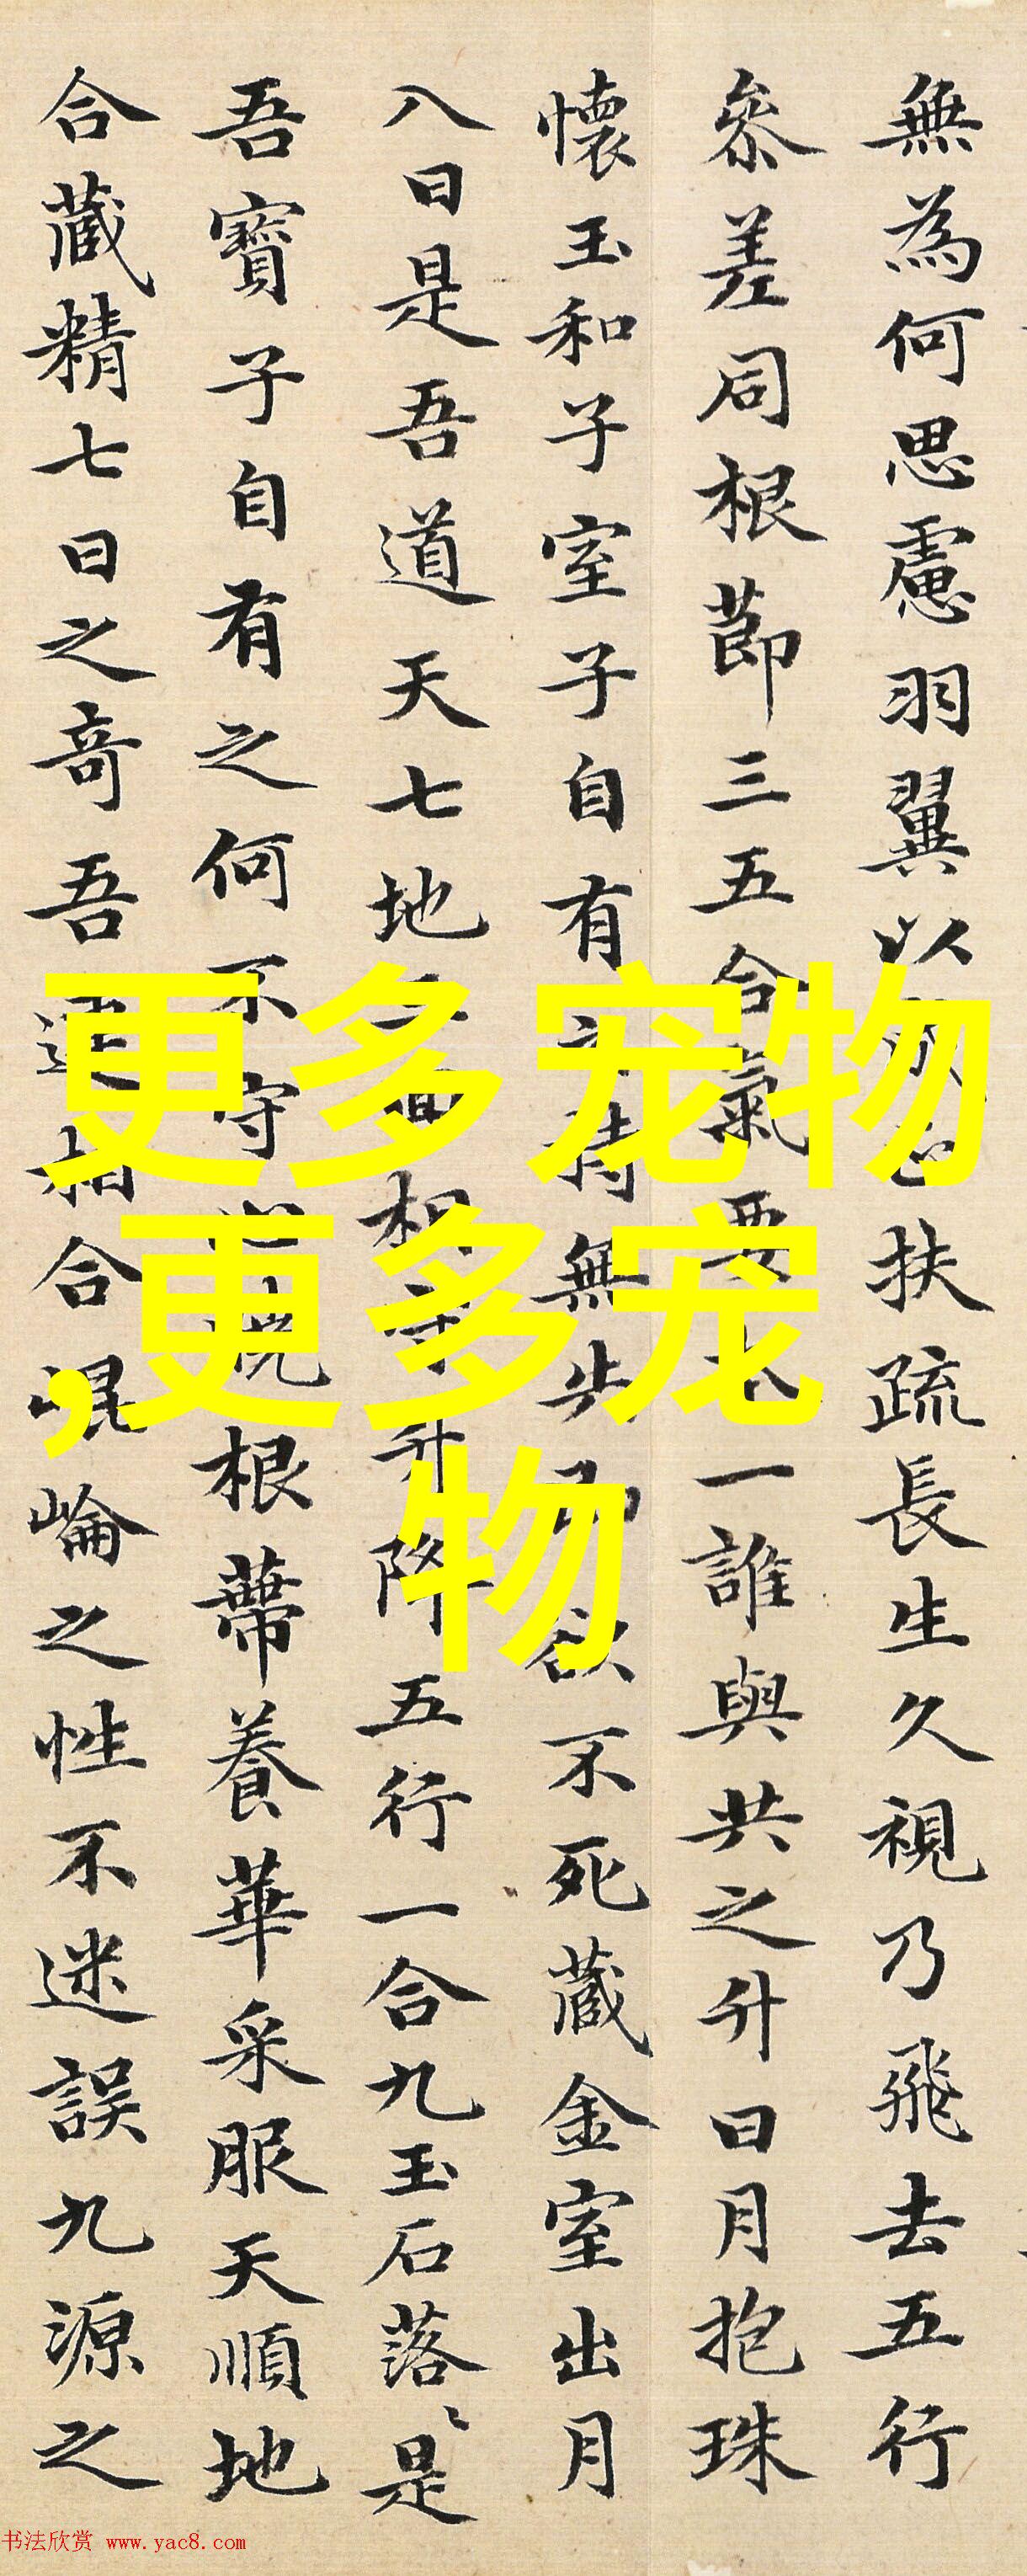 無為何思慮羽翼以扶疏長生久視乃飛去五行
參差同根節三五合氣要一誰與共之升日月抱珠
懷玉和子室子自有持無失欲不死藏金室出月
八日是吾道天七地相升降五行一合九玉石落〻是
吾寶子自有之何不守根蔕養華采服天順地
合藏精七日之奇吾相合崐崘之性不迷誤九源之
更多宠物
,更多宠
物
书法欣赏 www.yac8.com